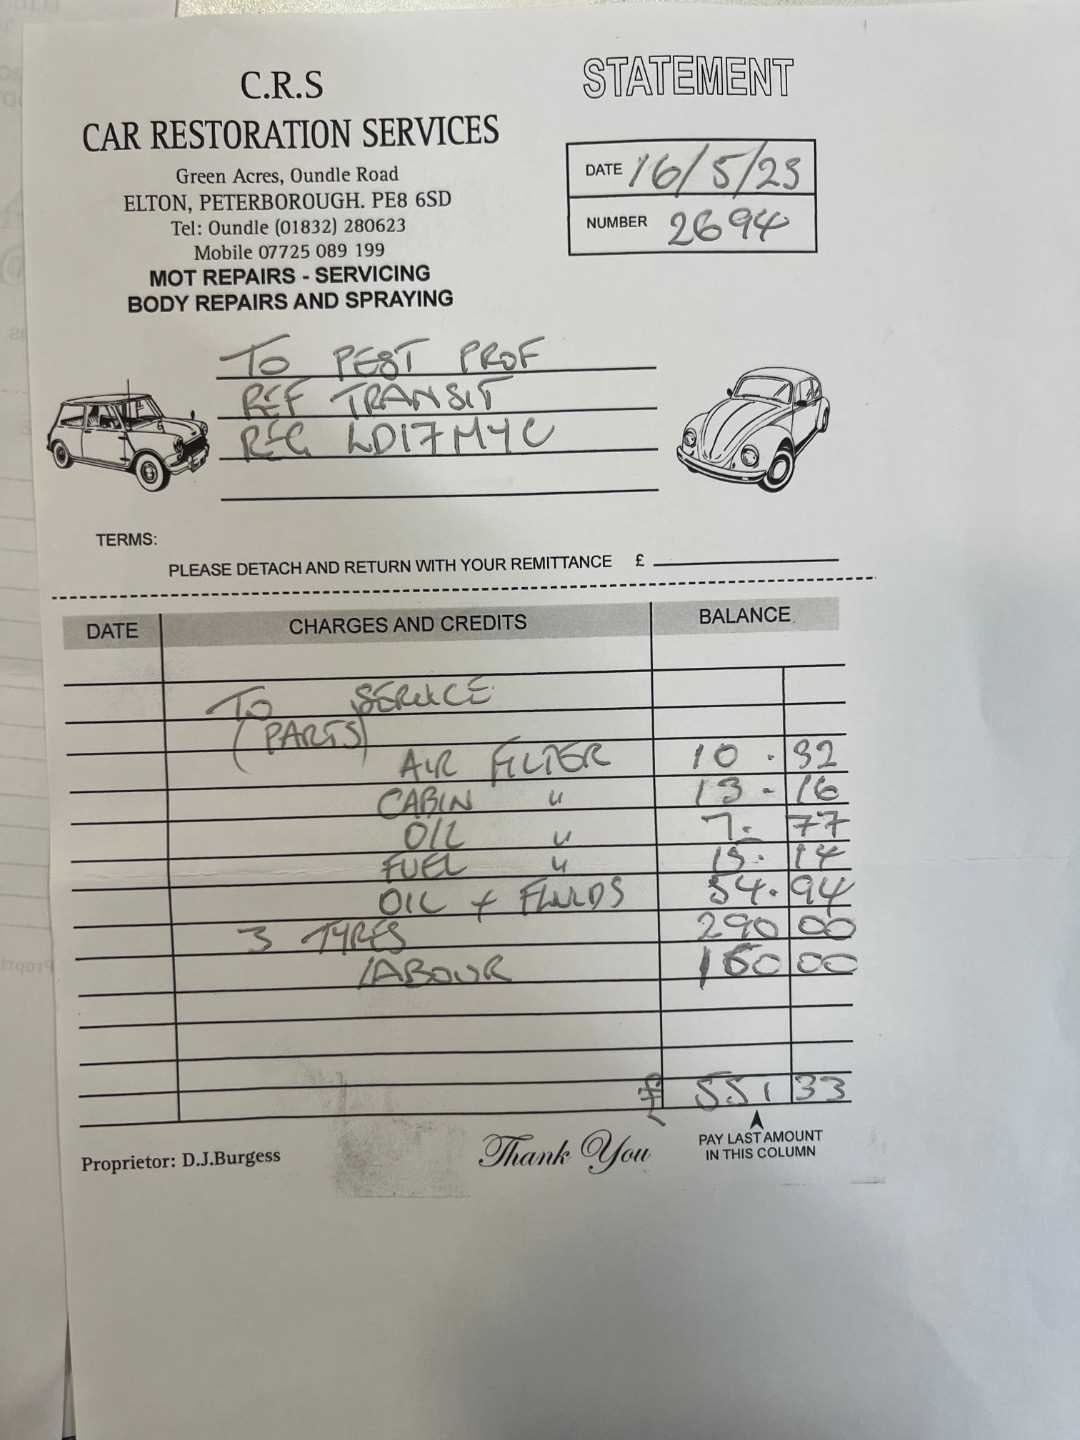 C.R.S
CAR RESTORATION SERVICES
Green Acres, Oundle Road
ELTON, PETERBOROUGH. PE8 6SD
Tel: Oundle (01832) 280623
Mobile 07725 089 199
MOT REPAIRS - SERVICING
BODY REPAIRS AND SPRAYING
STATEMENT
DATE 16/5/23
NUMBER 2694
TO PEST PROF
REF TRANSIT
REG LD17MYC
TERMS:
PLEASE DETACH AND RETURN WITH YOUR REMITTANCE £
DATE CHARGES AND CREDITS BALANCE
TO SERVICE
(PARTS)
AIR FILTER 10.32
CABIN " 13-16
OIL " 7-77
FUEL " 15.14
OIL + FLUIDS 54.94
3 TYRES 290 00
LABOUR 160 00
£ 551 33
Proprietor: D.J.Burgess
Thank You
PAY LAST AMOUNT
IN THIS COLUMN